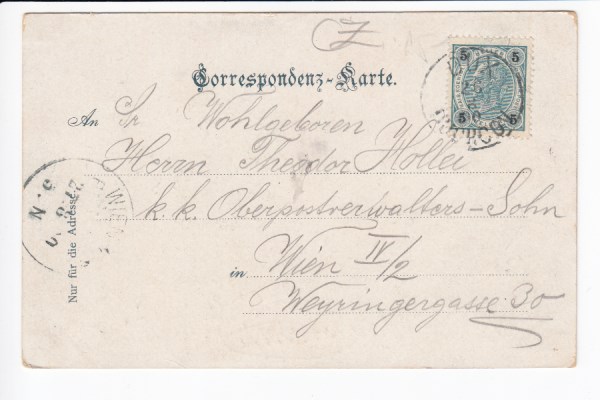 Correspondenz-Karte.
An Sr Wohlgeboren
Herrn Theodor Hollei
k. k. Oberpostverwalters-Sohn
in Wien IV/2
Weyringergasse 30
Nur für die Adresse.
5 5
5 5
WIEN